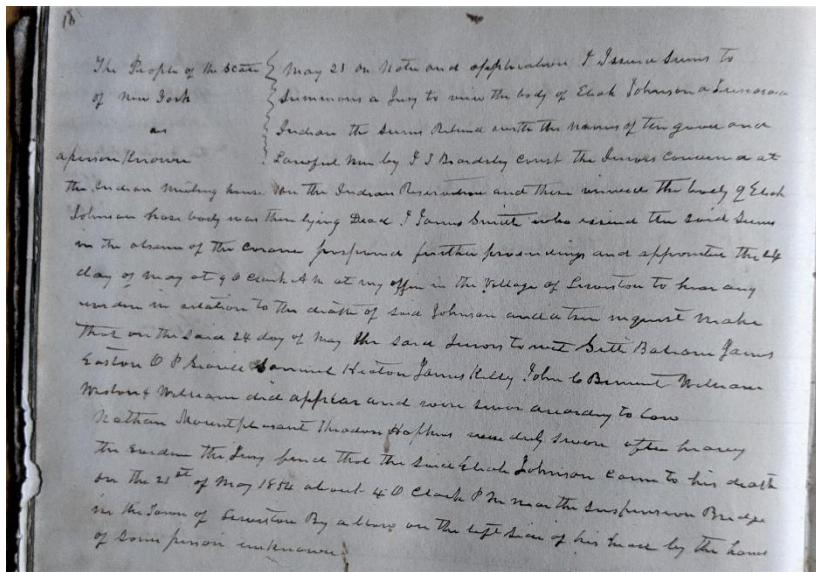 18
The People of the State { May 21 on Note and application I Issued Sums to
of New York { Summons a Jury to view the body of Eliah Johnson a Tuscarora
as { Indian the Sums Retund with the names of ten good and
a person Known { Lawful men by J S Beardsley Const the Jurors Convened at
the Indian Meeting house on the Indian Reservation and there viewed the body of Eliah
Johnson hose body was then lying Dead I James Smith who issued the said Sums
in the absence of the Corone postpond further proceedings and appointed the 24
day of May at 9 O Clock A M at my office in the Village of Lewiston to hear any
evidence in relation to the death of said Johnson and a true inquest Make
that on the Said 24 day of May the said Jurors to wit James
Easton O P Samuel James Kelly John C Bement William
William did appear and were sworn according to Law
Nathan Mountpleasant Theodore Hopkins were duly sworn after hearing
the evidence the Jury find that the said Eliah Johnson came to his death
on the 21st of May 1854 about 4 O Clock P M near the Suspension Bridge
in the Town of Lewiston By a blow on the left Side of his head by the hand
of Some person unknown